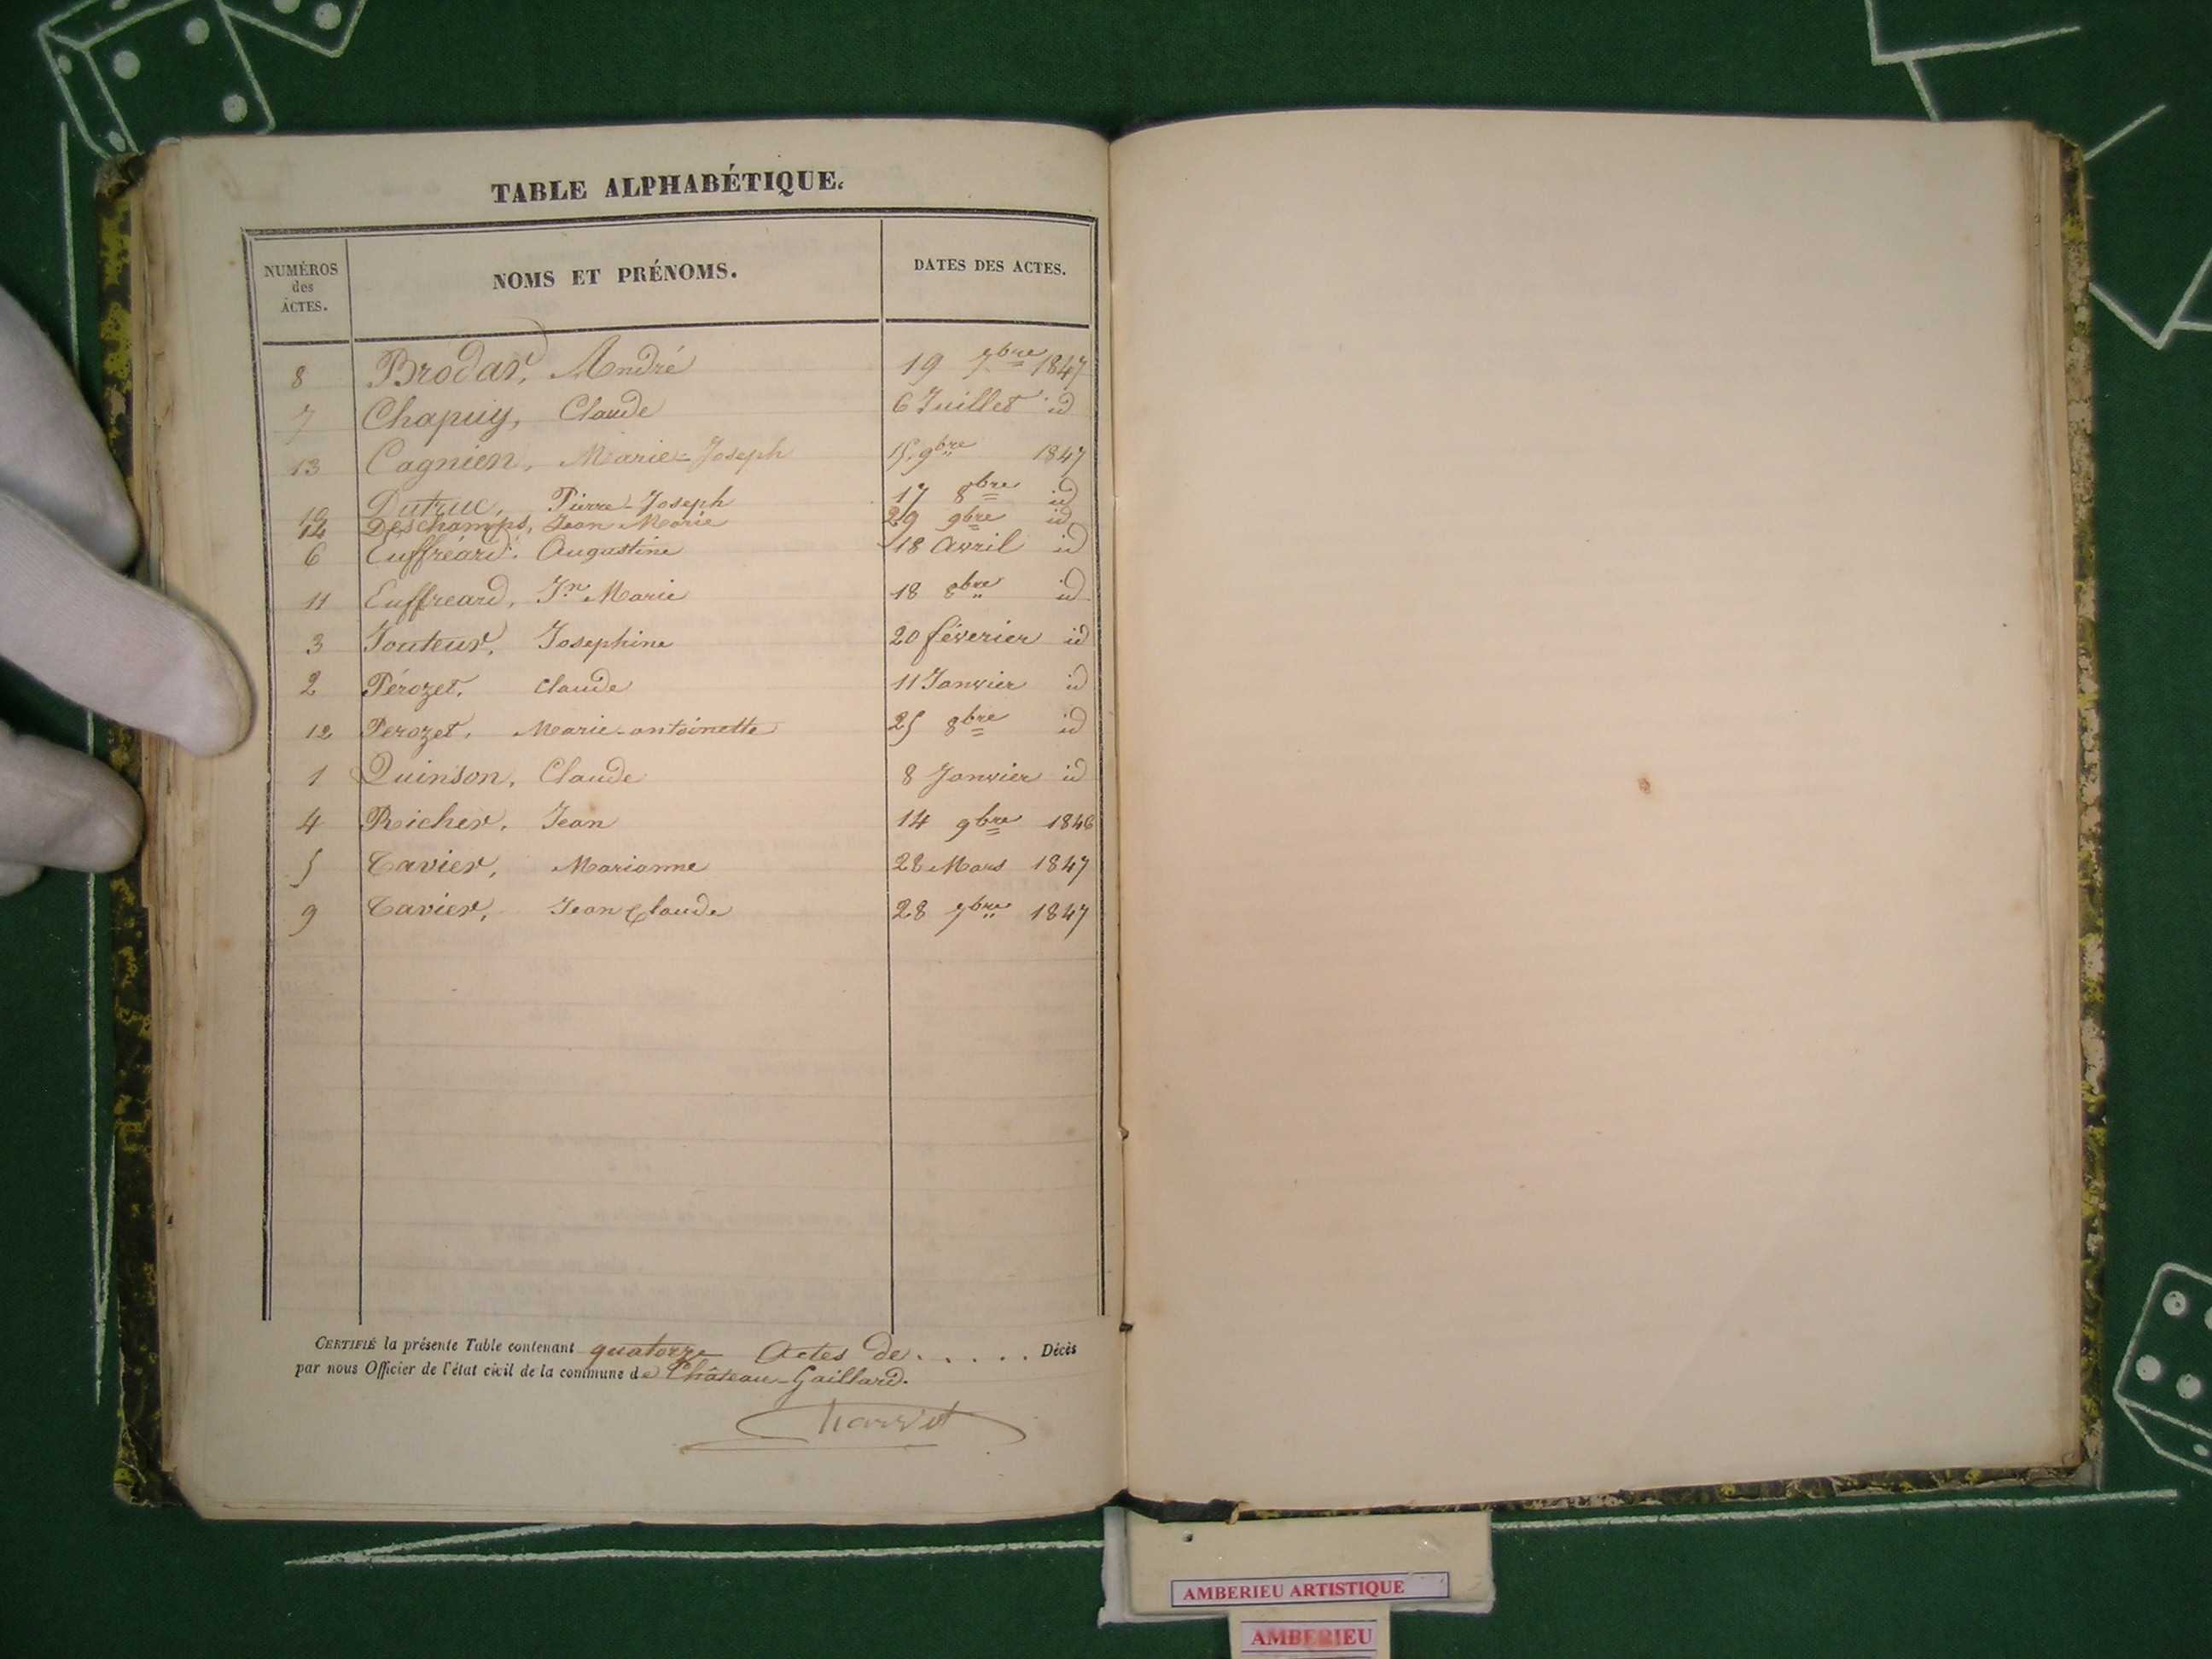 TABLE ALPHABÉTIQUE.
NUMÉROS des ACTES. NOMS ET PRÉNOMS. DATES DES ACTES.
8 Brodar, André 19 7bre 1847
7 Chapuy, Claude 6 Juillet id
13 Cagnien, Marie-Joseph 15 9bre 1847
10 Dutruc, Pierre-Joseph 17 8bre id
14 Deschamps, Jean Marie 29 9bre id
6 Euffréard, Augustine 18 Avril id
11 Euffreard, Jn Marie 18 8bre id
3 Jouteur, Josephine 20 féverier id
2 Pérozet, Claude 11 Janvier id
12 Perozet, Marie-antoinette 25 8bre id
1 Quinson, Claude 8 Janvier id
4 Richer, Jean 14 9bre 1846
5 Tavier, Marianne 28 Mars 1847
9 Tavier, Jean Claude 28 7bre 1847
CERTIFIÉ la présente Table contenant quatorze Actes de..... Décès
par nous Officier de l'état civil de la commune de Château-Gaillard.
AMBERIEU ARTISTIQUE
AMBERIEU